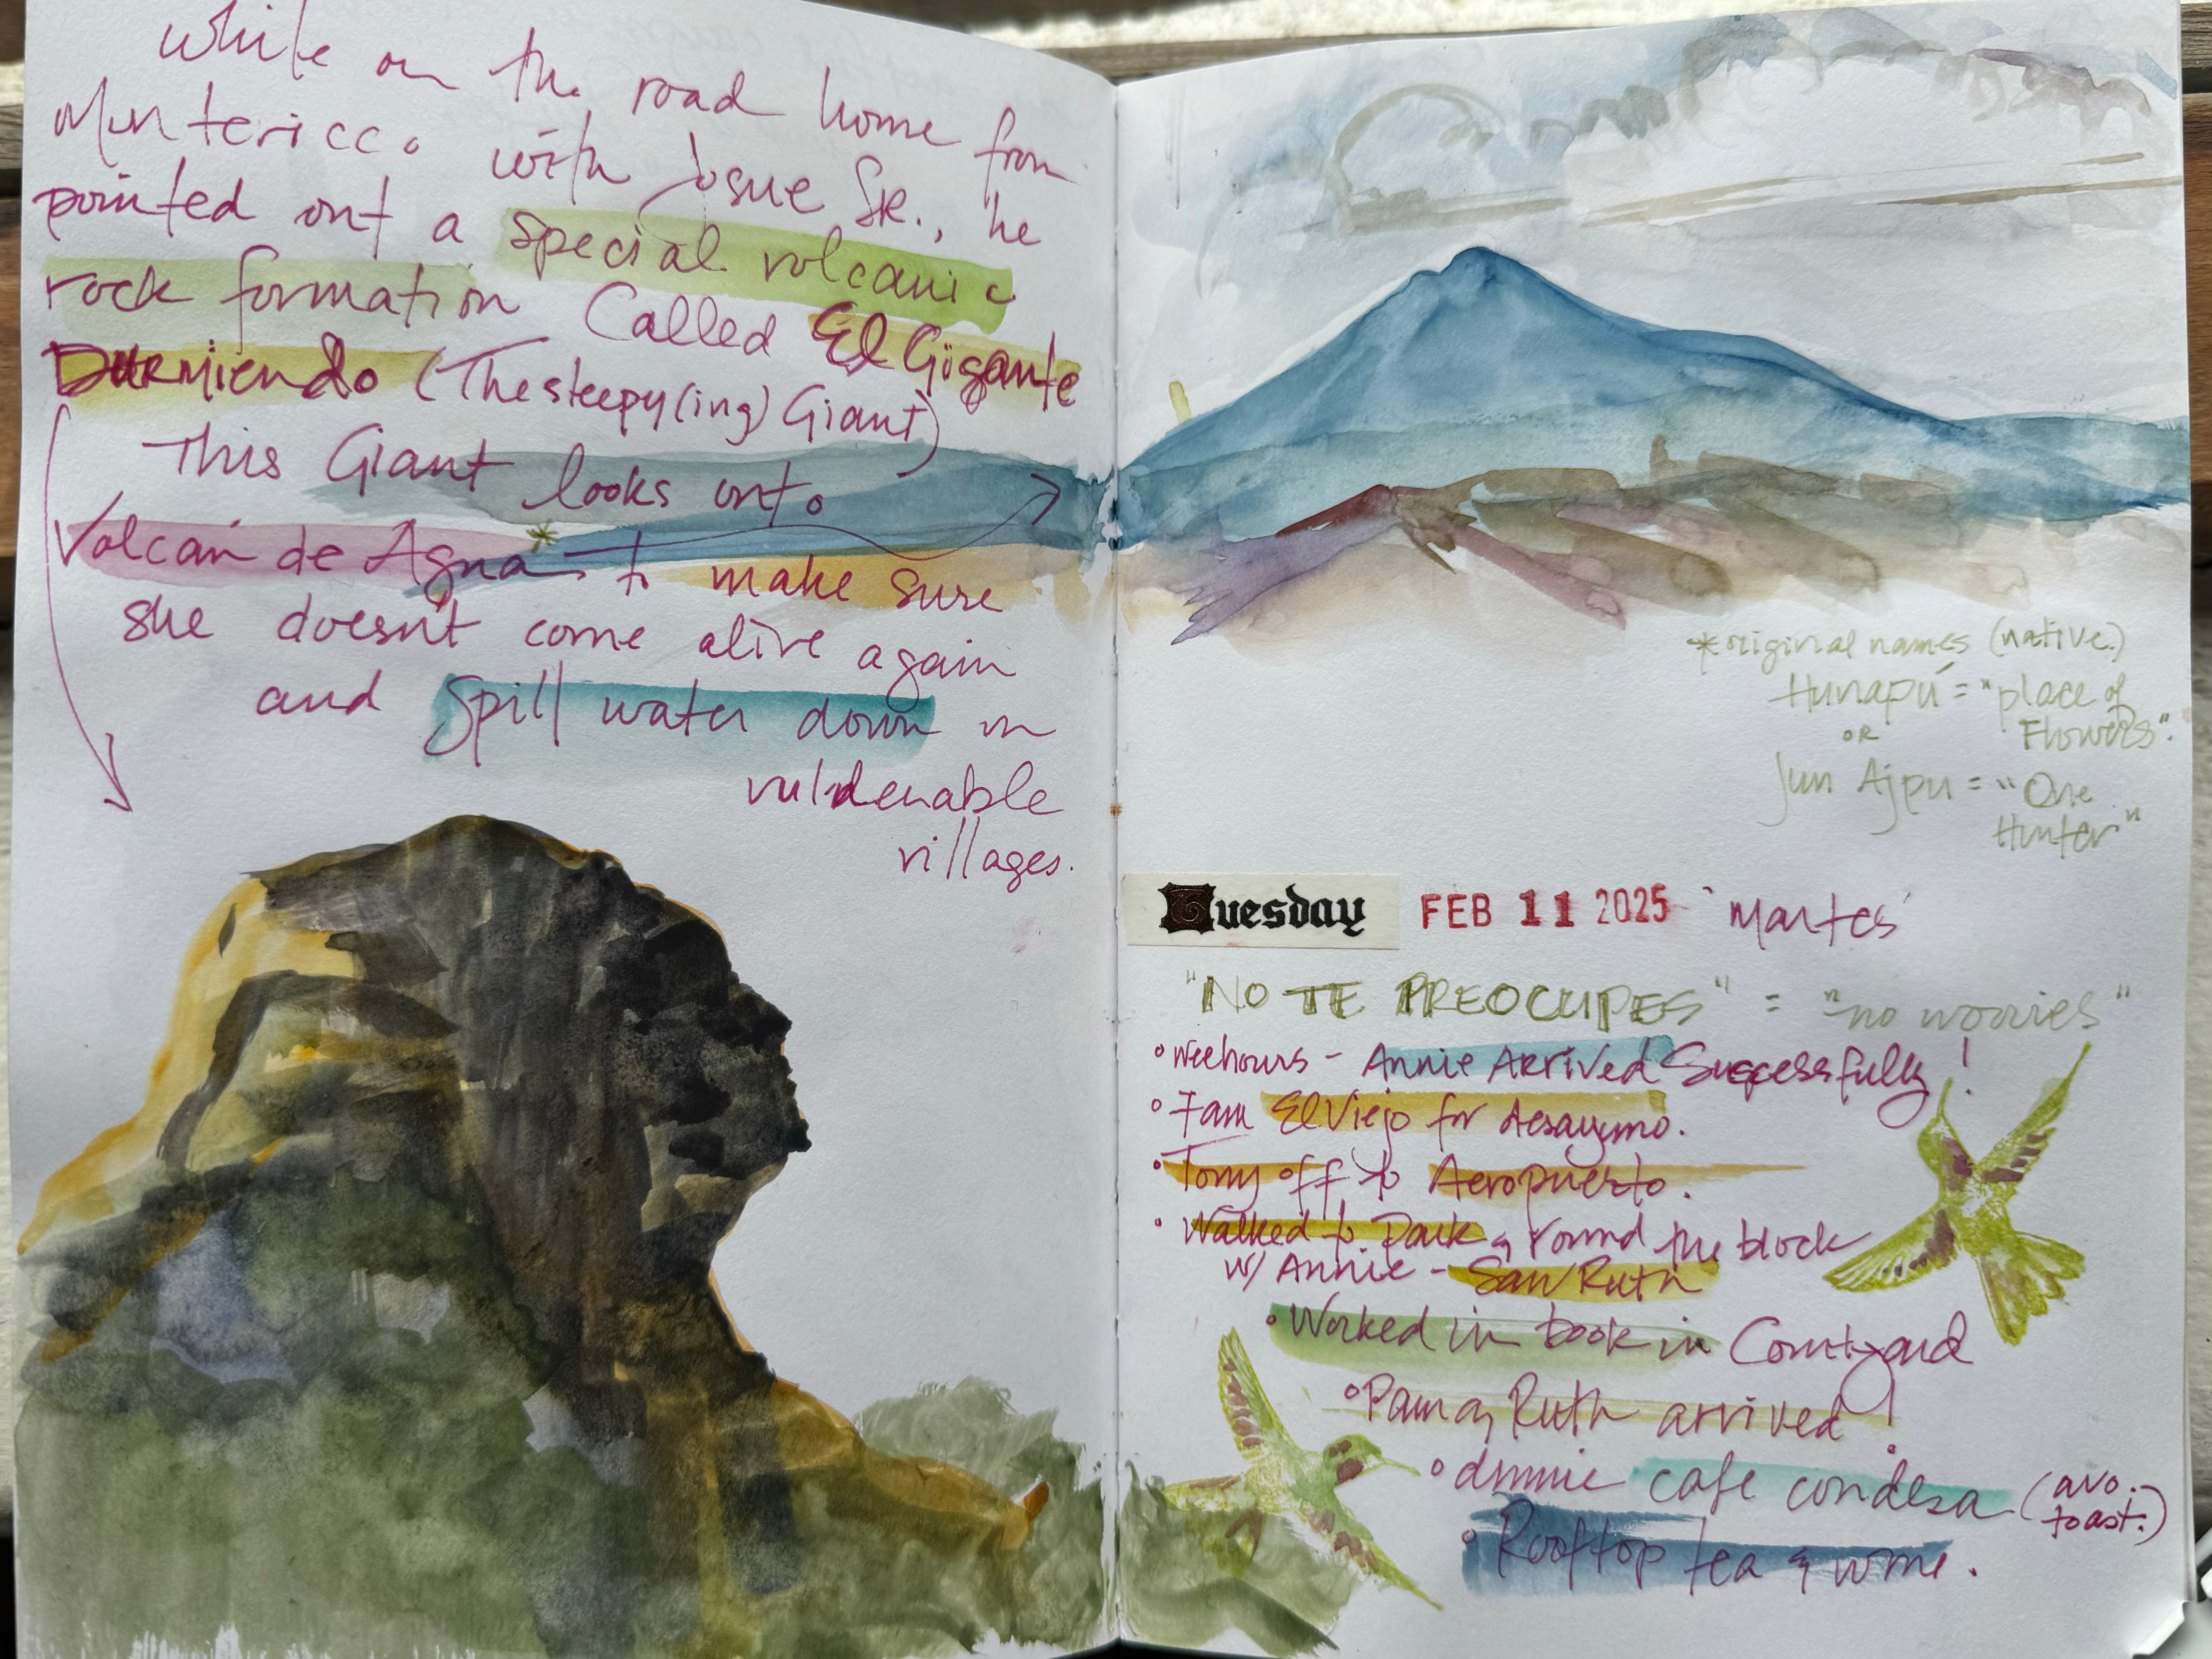 While on the road home from
Montericco with Josue SR., he
pointed out a special volcanic
rock formation Called El Gigante
DURMiendo (The sleepy(ing) Giant)
This Giant looks onto
Volcán de Agua to make sure
she doesn't come alive again
and spill water down on
vulnerable
villages.
*original names (native)
Hunapú = "place of
OR Flowers".
Jun Ajpu = "One
Hunter"
Tuesday FEB 11 2025 'Martes'
"NO TE PREOCUPES" = "no worries"
• Weehours - Annie Arrived Successfully!
• 7am El Viejo for desayuno.
• Tony off to Aeropuerto.
• Walked to Park & round the block
w/ Annie - Saw Ruth
• Worked in book in Courtyard
• Pam & Ruth arrived!
• dinnie cafe condesa (avo.
toast.)
• Rooftop tea & wine.